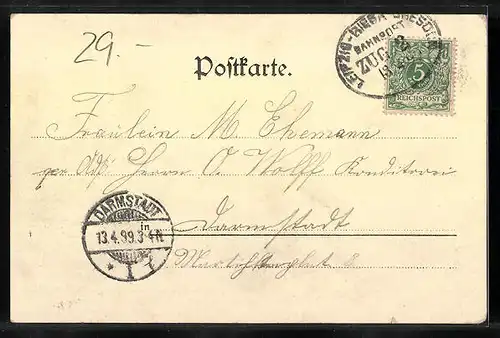 29.-
LEIPZIG-RIESA-DRESDEN
BAHNPOST
ZUG
5
REICHSPOST
Postkarte.
Fräulein M. Ehemann
per Adr. Herrn O. Wolff Konditorei
Darmstadt
DARMSTADT
in
13.4.99.3-4N.
* 1 *